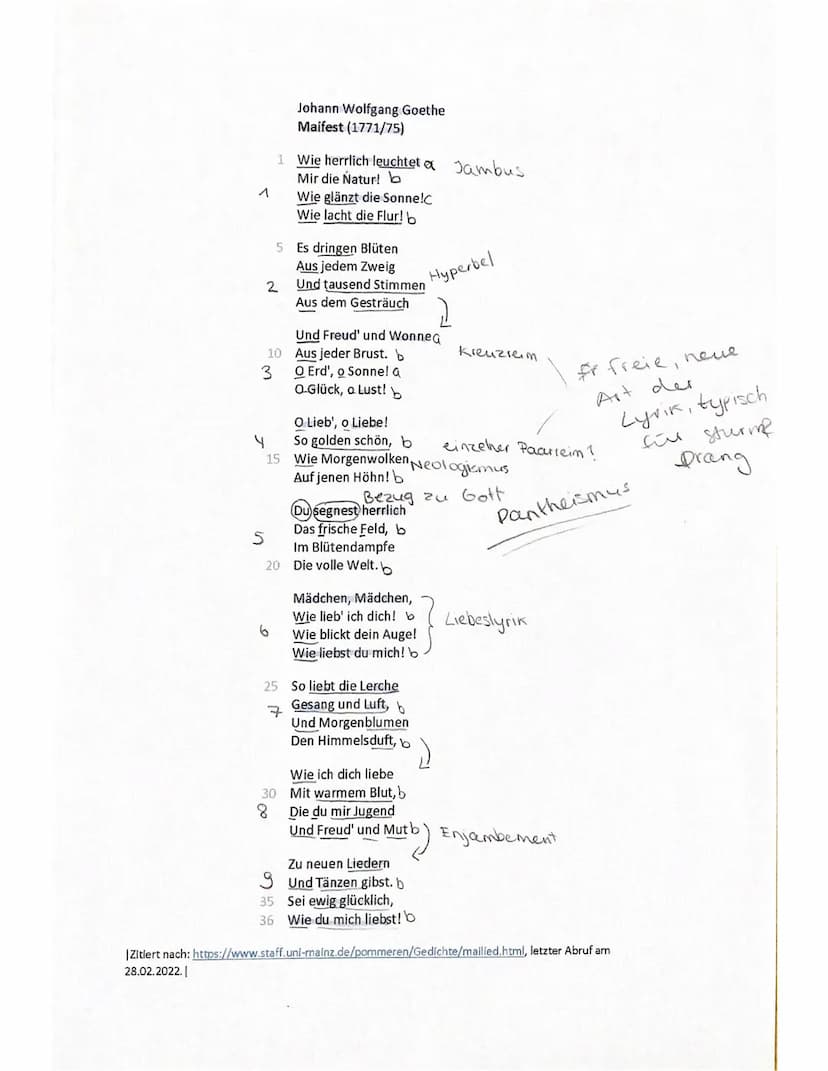 Johann Wolfgang Goethe
Maifest (1771/75)
1 Wie herrlich leuchtet a Jambus
Mir die Natur! b
1 Wie glänzt die Sonne! c
Wie lacht die Flur! b
5 Es dringen Blüten
Aus jedem Zweig
2 Und tausend Stimmen Hyperbel
Aus dem Gesträuch
Und Freud' und Wonne a
10 Aus jeder Brust. b Kreuzreim
3 O Erd', o Sonne! a
O Glück, o Lust! b
freie, neue
Art der
Lyrik, typisch
für Sturm &
Drang
O Lieb', o Liebe!
4 So golden schön, b einzelner Paarreim?
15 Wie Morgenwolken, Neologismus
Auf jenen Höhn! b
Bezug zu Gott
Du segnest herrlich Pantheismus
Das frische Feld, b
5 Im Blütendampfe
20 Die volle Welt. b
Mädchen, Mädchen,
Wie lieb' ich dich! b Liebeslyrik
6 Wie blickt dein Auge!
Wie liebst du mich! b
25 So liebt die Lerche
7 Gesang und Luft, b
Und Morgenblumen
Den Himmelsduft, b
Wie ich dich liebe
30 Mit warmem Blut, b
8 Die du mir Jugend
Und Freud' und Mut b Enjambement
Zu neuen Liedern
9 Und Tänzen gibst. b
35 Sei ewig glücklich,
36 Wie du mich liebst! b
|Zitiert nach: https://www.staff.uni-mainz.de/pommeren/Gedichte/mailied.html, letzter Abruf am
28.02.2022.|